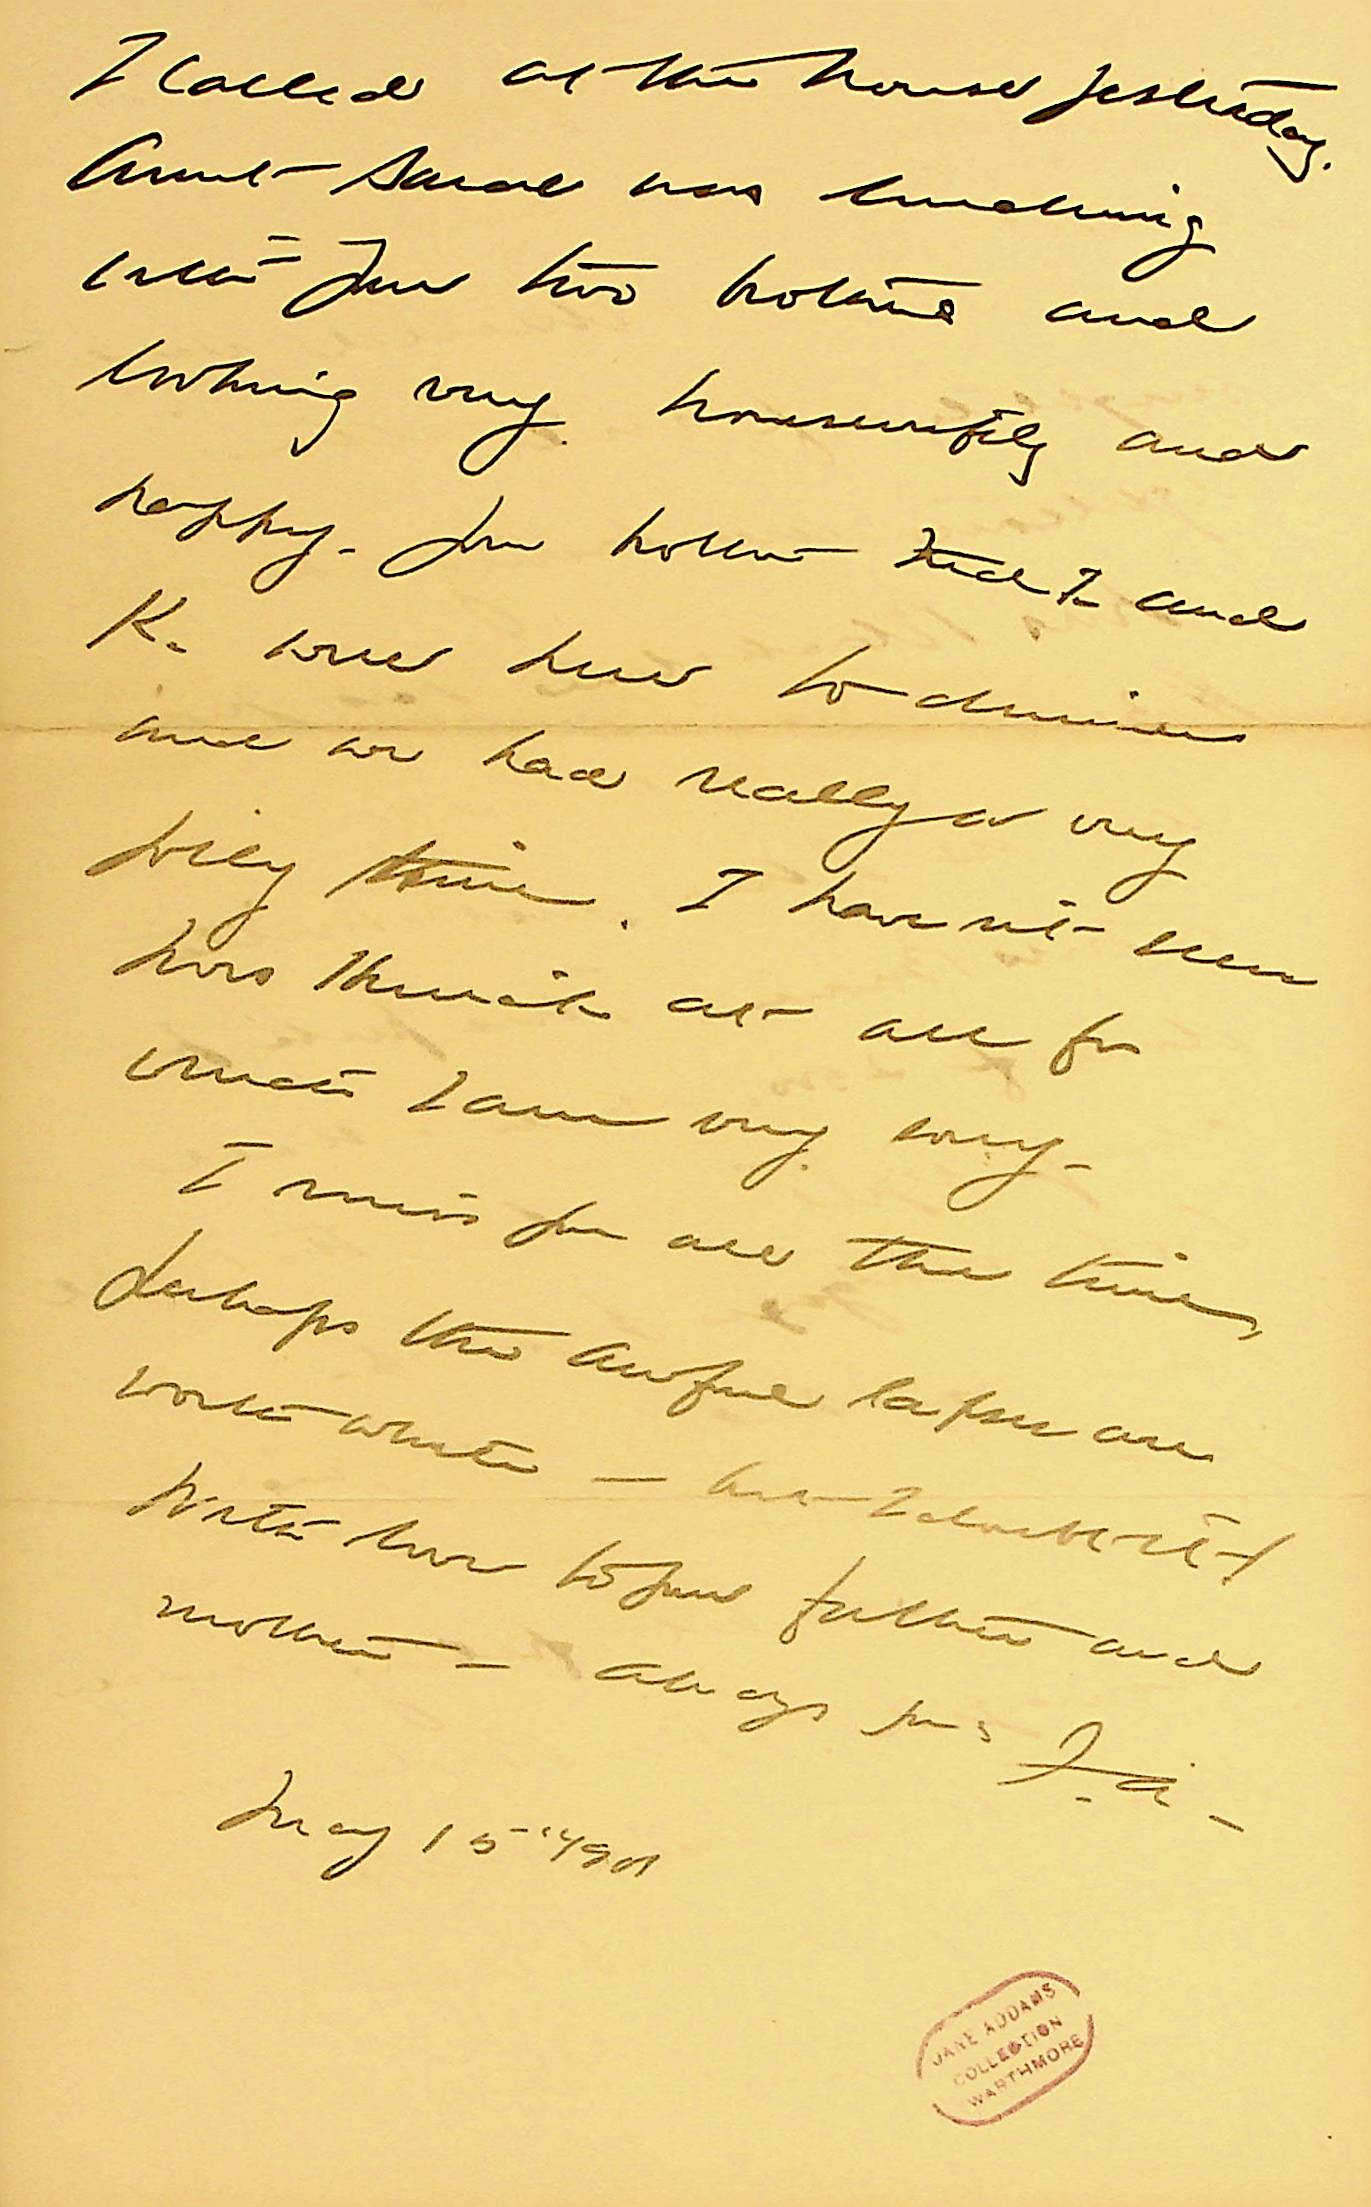 I called at the house yesterday.
Aunt Sarah was lunching
with your two brothers and
looking very housewifely and
happy. Your brother Fred & and
K. were here to dinner
and we had really a very
jolly time. I have not seen
Mrs at all for
which I am very sorry.
I miss you all the time,
perhaps the awful lapses are
worth while — but I doubt it!
With love to your father and
mother — always yrs J. A. –
May 15" 1901
JANE ADDAMS
COLLECTION
WARTHMORE